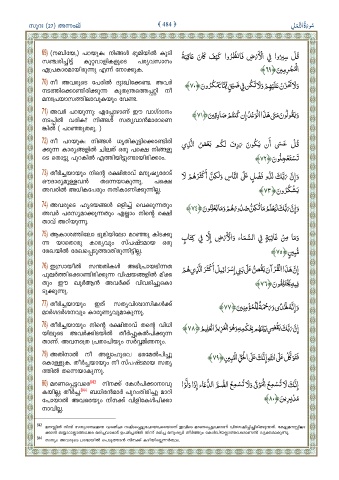 സൂറ (27) അന്നംല്
﴾ 484 ﴿
سُورَةُ النَّمْلِ
69) (നബിയേ,) പറയുക: നിങ്ങൾ ഭൂമിയിൽ കൂടി
സഞ്ചരിച്ചിട്ട് കുറ്റവാളികളുടെ പര്യവസാനം
എപ്രകാരമായിരുന്നു എന്ന് നോക്കുക.
قُلْ سِيرُوا فِي الْأَرْضِ فَانْظُرُوا كَيْفَ كَانَ عَاقِبَةُ
الْمُجْرِمِينَ ﴿٦٩﴾
70) നീ അവരുടെ പേരിൽ ദുഃഖിക്കേണ്ട. അവർ
നടത്തിക്കൊണ്ടിരിക്കുന്ന കുതന്ത്രത്തെപ്പറ്റി നീ
മനഃപ്രയാസത്തിലാവുകയും വേണ്ട.
وَلَا تَحْزَنْ عَلَيْهِمْ وَلَا تَكُنْ فِي ضَيْقٍ مِمَّا يَمْكُرُونَ ﴿٧٠﴾
71) അവർ പറയുന്നു: എപ്പോഴാണ് ഈ വാഗ്ദാനം
നടപ്പിൽ വരിക? നിങ്ങൾ സത്യവാൻമാരാണെ
ങ്കിൽ ( പറഞ്ഞുതരൂ. )
وَيَقُولُونَ مَتَى هَذَا الْوَعْدُ إِنْ كُنْتُمْ صَادِقِينَ ﴿٧١﴾
72) നീ പറയുക: നിങ്ങൾ ധൃതികൂട്ടിക്കൊണ്ടിരി
ക്കുന്ന കാര്യങ്ങളിൽ ചിലത് ഒരു പക്ഷെ നിങ്ങളു
ടെ തൊട്ടു പുറകിൽ എത്തിയിട്ടുണ്ടായിരിക്കാം.
قُلْ عَسَى أَنْ يَكُونَ رَدِفَ لَكُمْ بَعْضُ الَّذِي
تَسْتَعْجِلُونَ ﴿٧٢﴾
73) തീർച്ചയായും നിന്റെ രക്ഷിതാവ് മനുഷ്യരോട്
ഔദാര്യമുള്ളവൻ തന്നെയാകുന്നു. പക്ഷെ
അവരിൽ അധികപേരും നന്ദികാണിക്കുന്നില്ല.
وَإِنَّ رَبَّكَ لَذُو فَضْلٍ عَلَى النَّاسِ وَلَكِنَّ أَكْثَرَهُمْ لَا
يَشْكُرُونَ ﴿٧٣﴾
74) അവരുടെ ഹൃദയങ്ങൾ ഒളിച്ച് വെക്കുന്നതും
അവർ പരസ്യമാക്കുന്നതും എല്ലാം നിന്റെ രക്ഷി
താവ് അറിയുന്നു.
وَإِنَّ رَبَّكَ لَيَعْلَمُ مَا تُكِنُّ صُدُورُهُمْ وَمَا يُعْلِنُونَ ﴿٧٤﴾
75) ആകാശത്തിലോ ഭൂമിയിലോ മറഞ്ഞു കിടക്കു
ന്ന യാതൊരു കാര്യവും സ്പഷ്ടമായ ഒരു
രേഖയിൽ രേഖപ്പെടുത്താതിരുന്നിട്ടില്ല.
وَمَا مِنْ غَائِبَةٍ فِي السَّمَاءِ وَالْأَرْضِ إِلَّا فِي كِتَابٍ
مُبِينٍ ﴿٧٥﴾
76) ഇസ്രായീൽ സന്തതികൾ അഭിപ്രായഭിന്നത
പുലർത്തിക്കൊണ്ടിരിക്കുന്ന വിഷയങ്ങളിൽ മിക്ക
തും ഈ ഖുർആൻ അവർക്ക് വിവരിച്ചുകൊ
ടുക്കുന്നു.
إِنَّ هَذَا الْقُرْآنَ يَقُصُّ عَلَى بَنِي إِسْرَائِيلَ أَكْثَرَ الَّذِي هُمْ
فِيهِ يَخْتَلِفُونَ ﴿٧٦﴾
77) തീർച്ചയായും ഇത് സത്യവിശ്വാസികൾക്ക്
മാർഗദർശനവും കാരുണ്യവുമാകുന്നു.
وَإِنَّهُ لَهُدًى وَرَحْمَةٌ لِلْمُؤْمِنِينَ ﴿٧٧﴾
78) തീർച്ചയായും നിന്റെ രക്ഷിതാവ് തന്റെ വിധി
യിലൂടെ അവർക്കിടയിൽ തീർപ്പുകൽപിക്കുന്ന
താണ്. അവനത്രെ പ്രതാപിയും സർവ്വജ്ഞനും.
إِنَّ رَبَّكَ يَقْضِي بَيْنَهُمْ بِحُكْمِهِ وَهُوَ الْعَزِيزُ الْعَلِيمُ ﴿٧٨﴾
79) അതിനാൽ നീ അല്ലാഹുവെ ഭരമേൽപിച്ചു
കൊള്ളുക. തീർച്ചയായും നീ സ്പഷ്ടമായ സത്യ
ത്തിൽ തന്നെയാകുന്നു.
فَتَوَكَّلْ عَلَى اللَّهِ إِنَّكَ عَلَى الْحَقِّ الْمُبِينِ ﴿٧٩﴾
80) മരണപ്പെട്ടവരെ നിനക്ക് കേൾപ്പിക്കാനാവു
കയില്ല; തീർച്ച. ബധിരൻമാർ പുറംതിരിച്ചു മാറി
പോയാൽ അവരെയും നിനക്ക് വിളികേൾപിക്കാ
നാവില്ല.
إِنَّكَ لَا تُسْمِعُ الْمَوْتَى وَلَا تُسْمِعُ الصُّمَّ الدُّعَاءَ إِذَا وَلَّوْا
مُدْبِرِينَ ﴿٨٠﴾